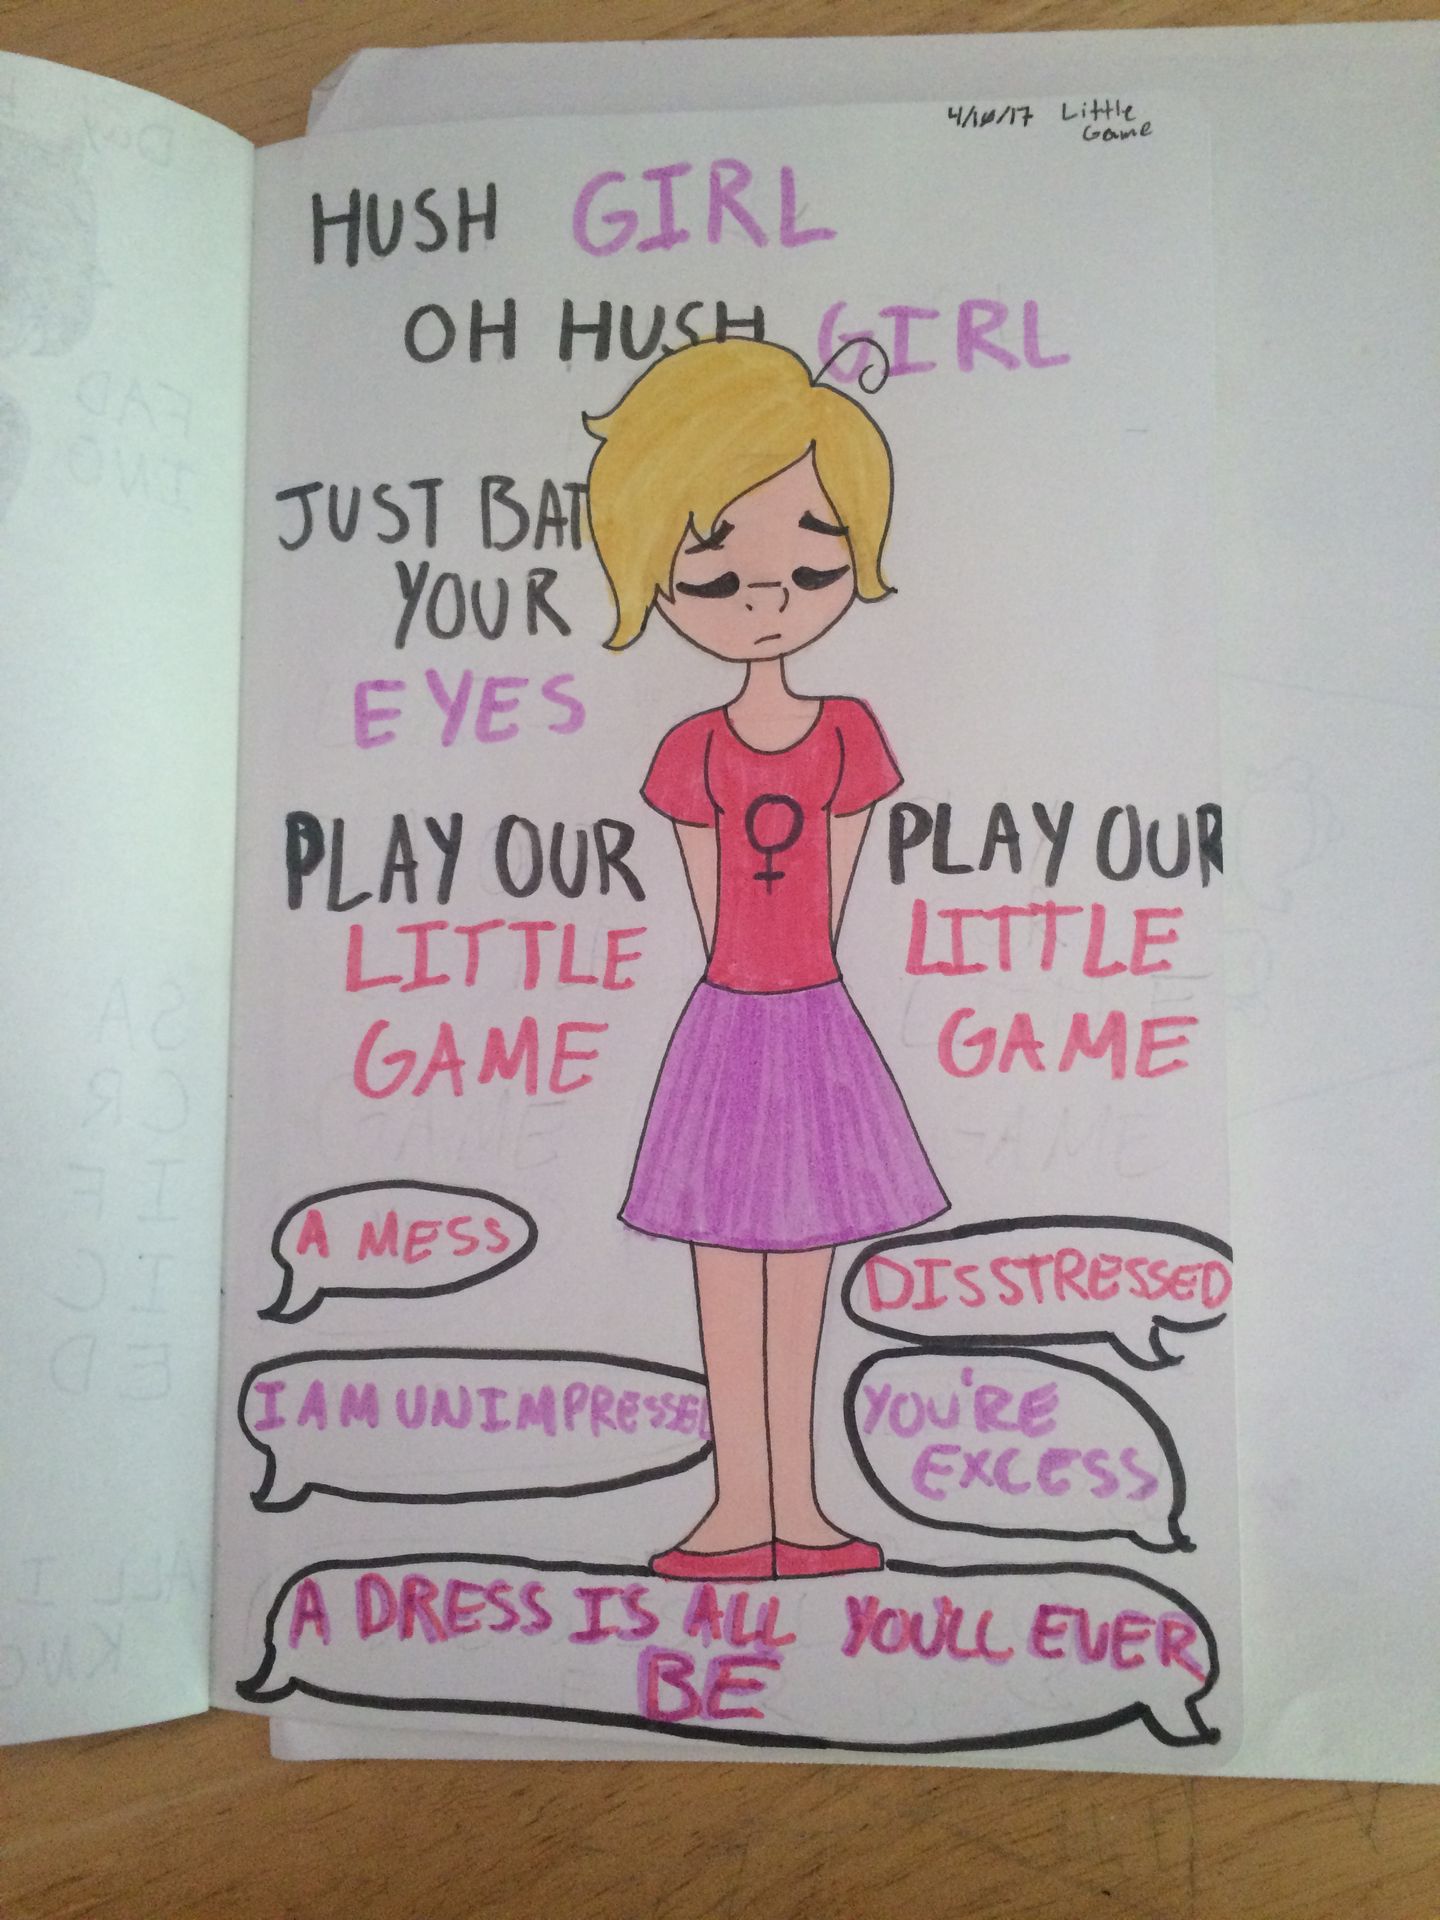 4/10/17 Little
Game
HUSH GIRL
OH HUSH GIRL
JUST BAT
YOUR
EYES
PLAY OUR
LITTLE
GAME
PLAY OUR
LITTLE
GAME
A MESS
DISSTRESSED
I AM UNIMPRESSED
YOU'RE
EXCESS
A DRESS IS ALL YOU'LL EVER
BE